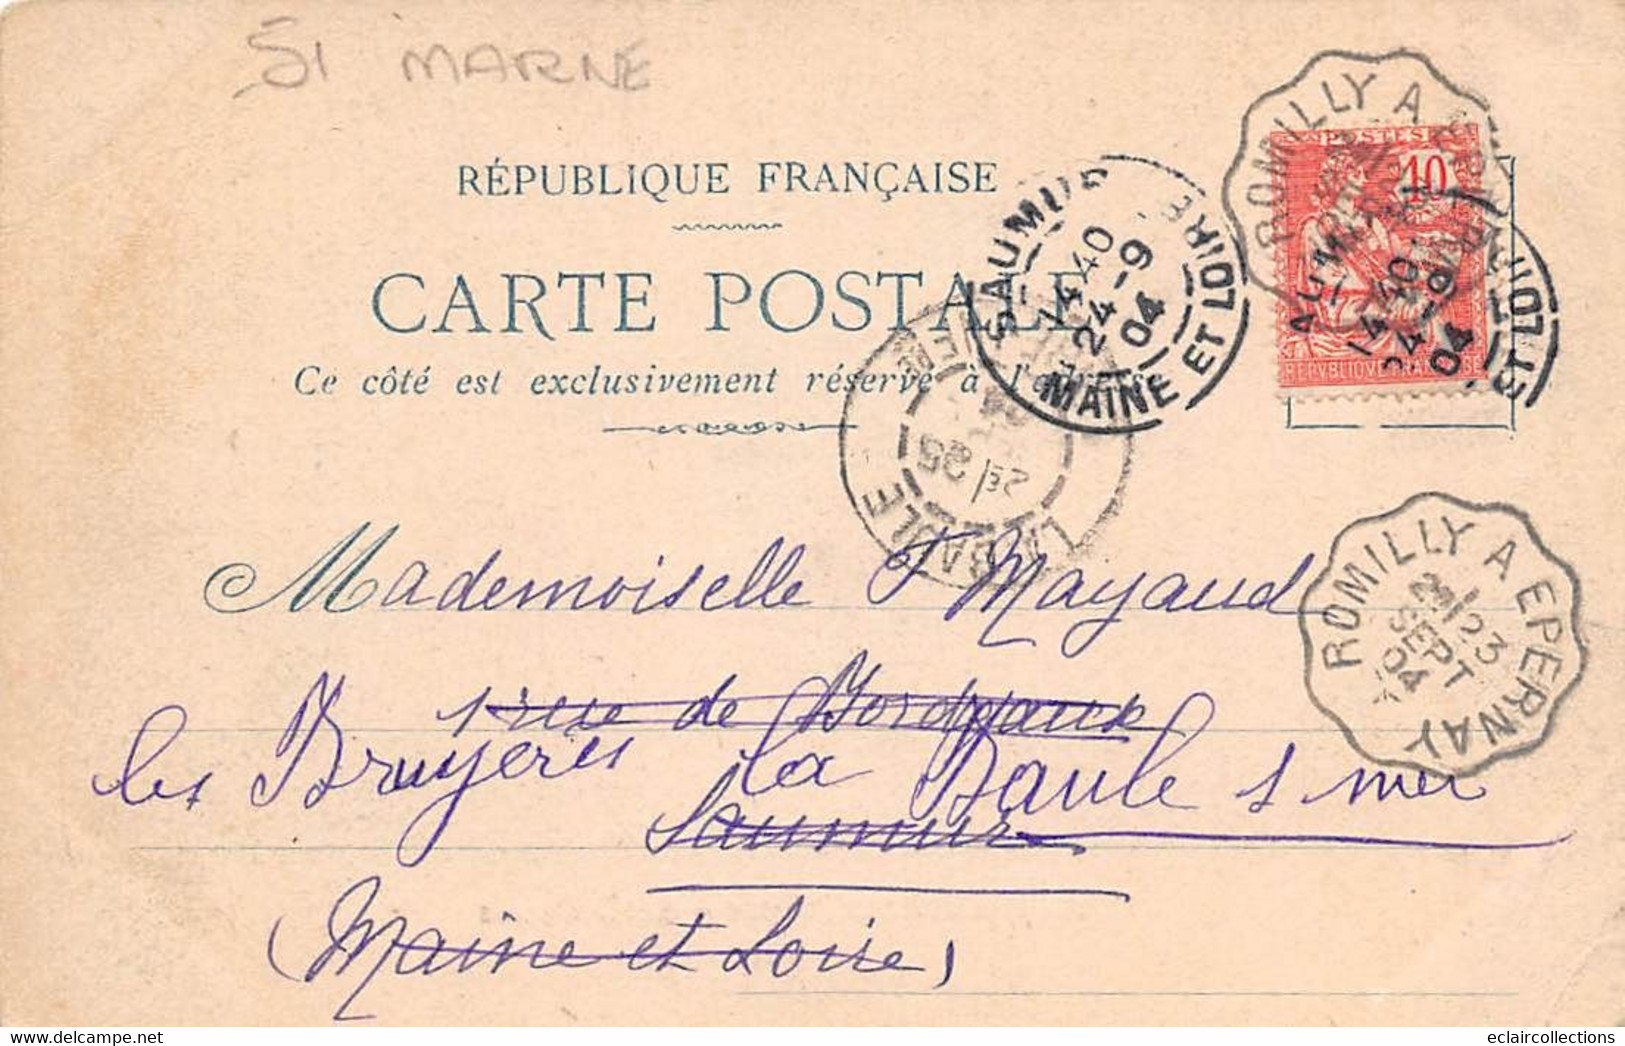 51 MARNE
RÉPUBLIQUE FRANÇAISE
CARTE POSTALE
Ce côté est exclusivement réservé à l'adresse
POSTES
10
REPVBLIQVE FRANCAISE
ROMILLY A
SAUMUR
14 40
24 - 9
04
MAINE ET LOIRE
14 40
24 - 9
04
ET LOIRE
LA BAULE
25
ROMILLY A EPERNAY
23
SEPT
04
Mademoiselle F Mayaud
1 rue de Bordeaux
les Bruyères la Baule s mer
Saumur
(Maine et Loire)
eclaircollections